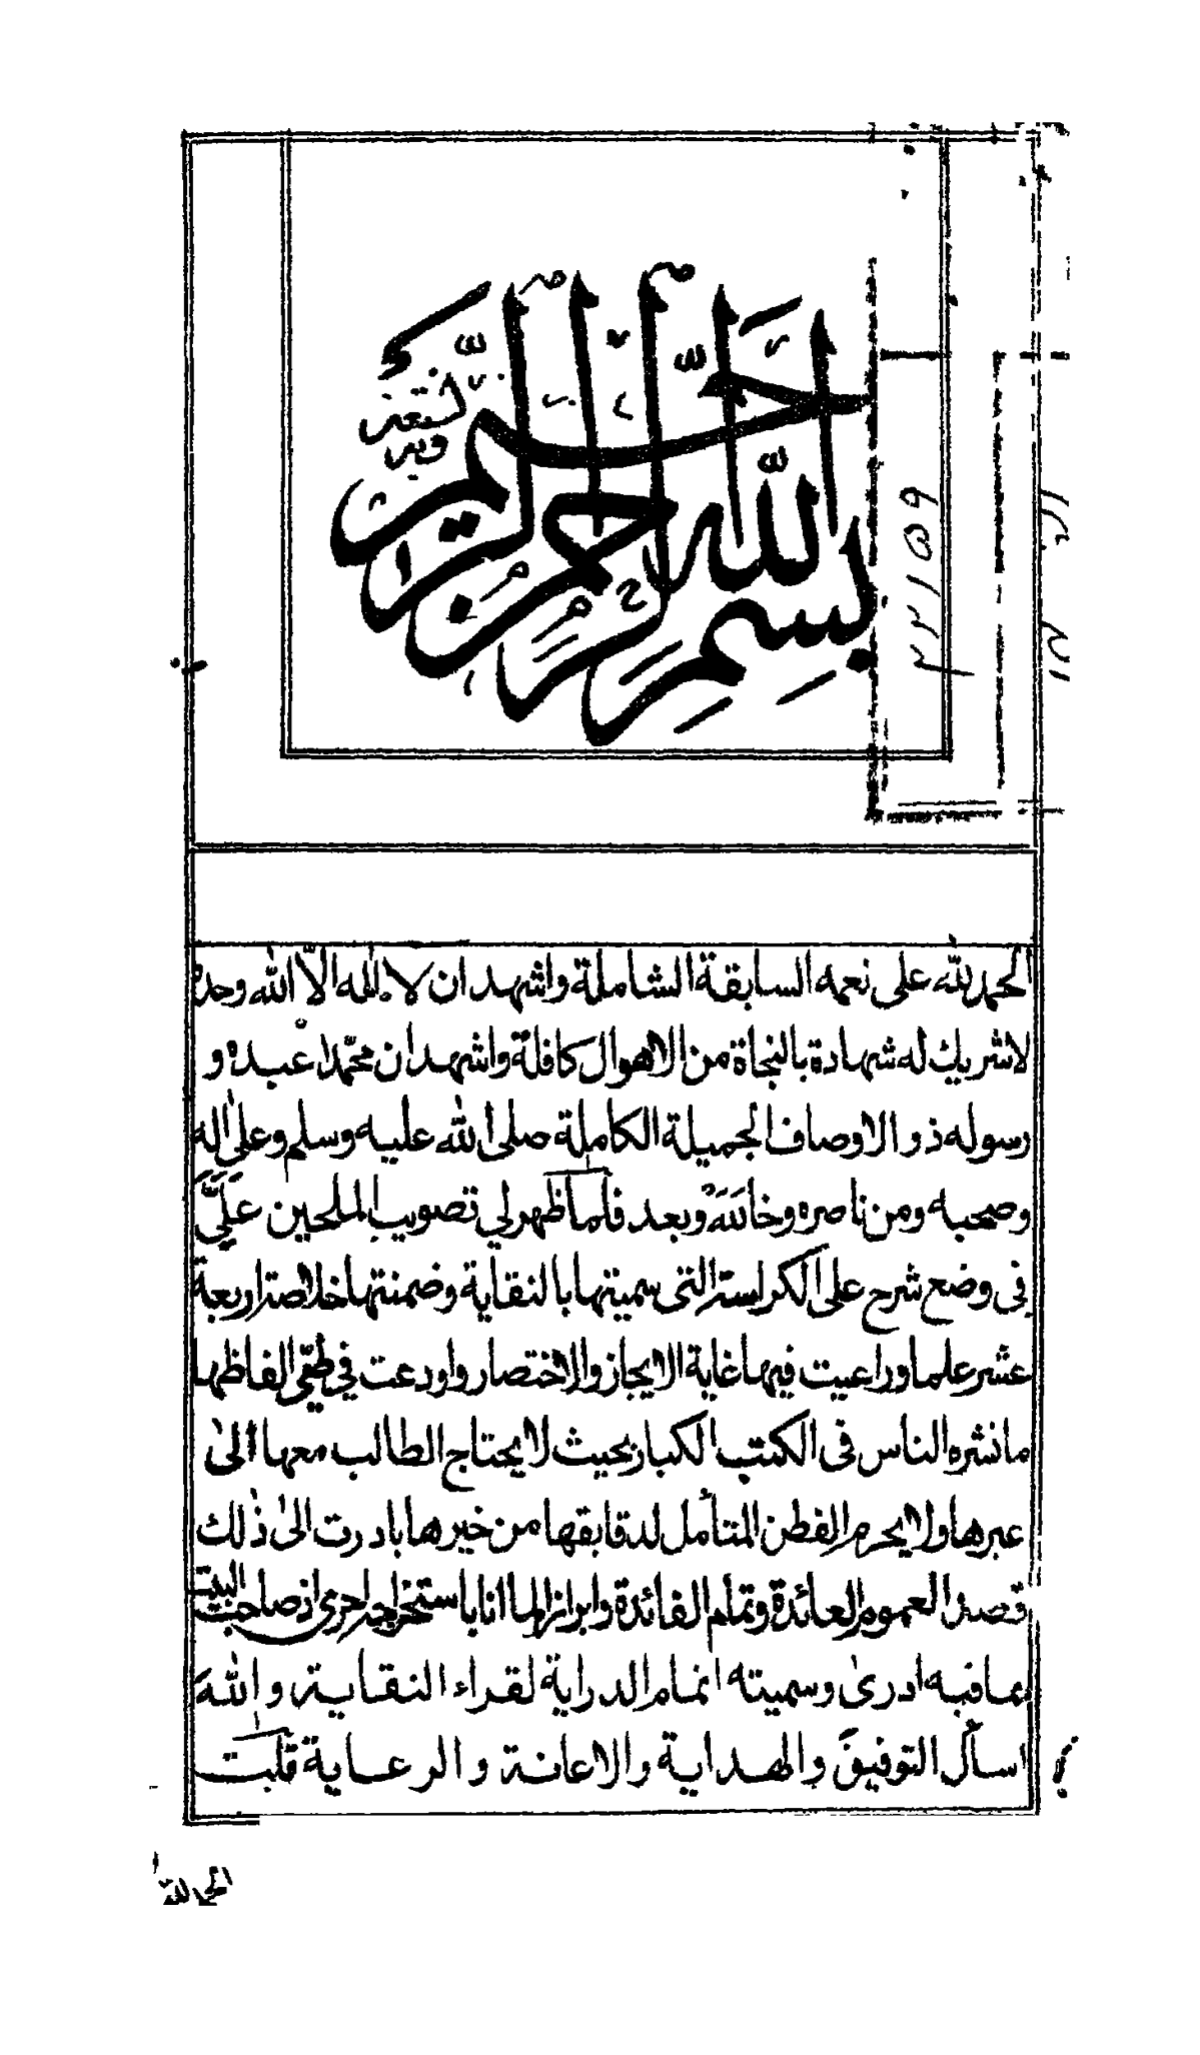 بسم الله الرحمن الرحيم
وبه نستعين
٢٢١٥٩
الحمد لله على نعمه السابقة الشاملة واشهد ان لا اله الا الله وحده
لا شريك له شهادة بالنجاة من الاهوال كافلة واشهد ان محمّدا عبده و
رسوله ذو الاوصاف الجميلة الكاملة صلى الله عليه وسلم وعلى اله
وصحبه ومن ناصره وخالَلَه وبعد فلما ظهر لي تصويب الملحين عَلَيَّ
في وضع شرح على الكراسة التى سميتها بالنقاية وضمنتها خلاصة اربعة
عشر علما وراعيت فيها غاية الايجاز والاختصار واودعت في طىّ الفاظها
ما نشره الناس فى الكتب الكبار بحيث لا يحتاج الطالب معها الى
غيرها ولا يحرم الفطن المتأمل لدقايقها من خيرها بادرت الى ذلك
قصدا لعموم العائدة وتمام الفائدة وابرازا لما انا باستخراجه احرى اذ صاحب البيت
بما فيه ادرى وسميته اتمام الدراية لقراء النقاية والله
اسأل التوفيق والهداية والاعانة والرعاية قلت
الحمد لله